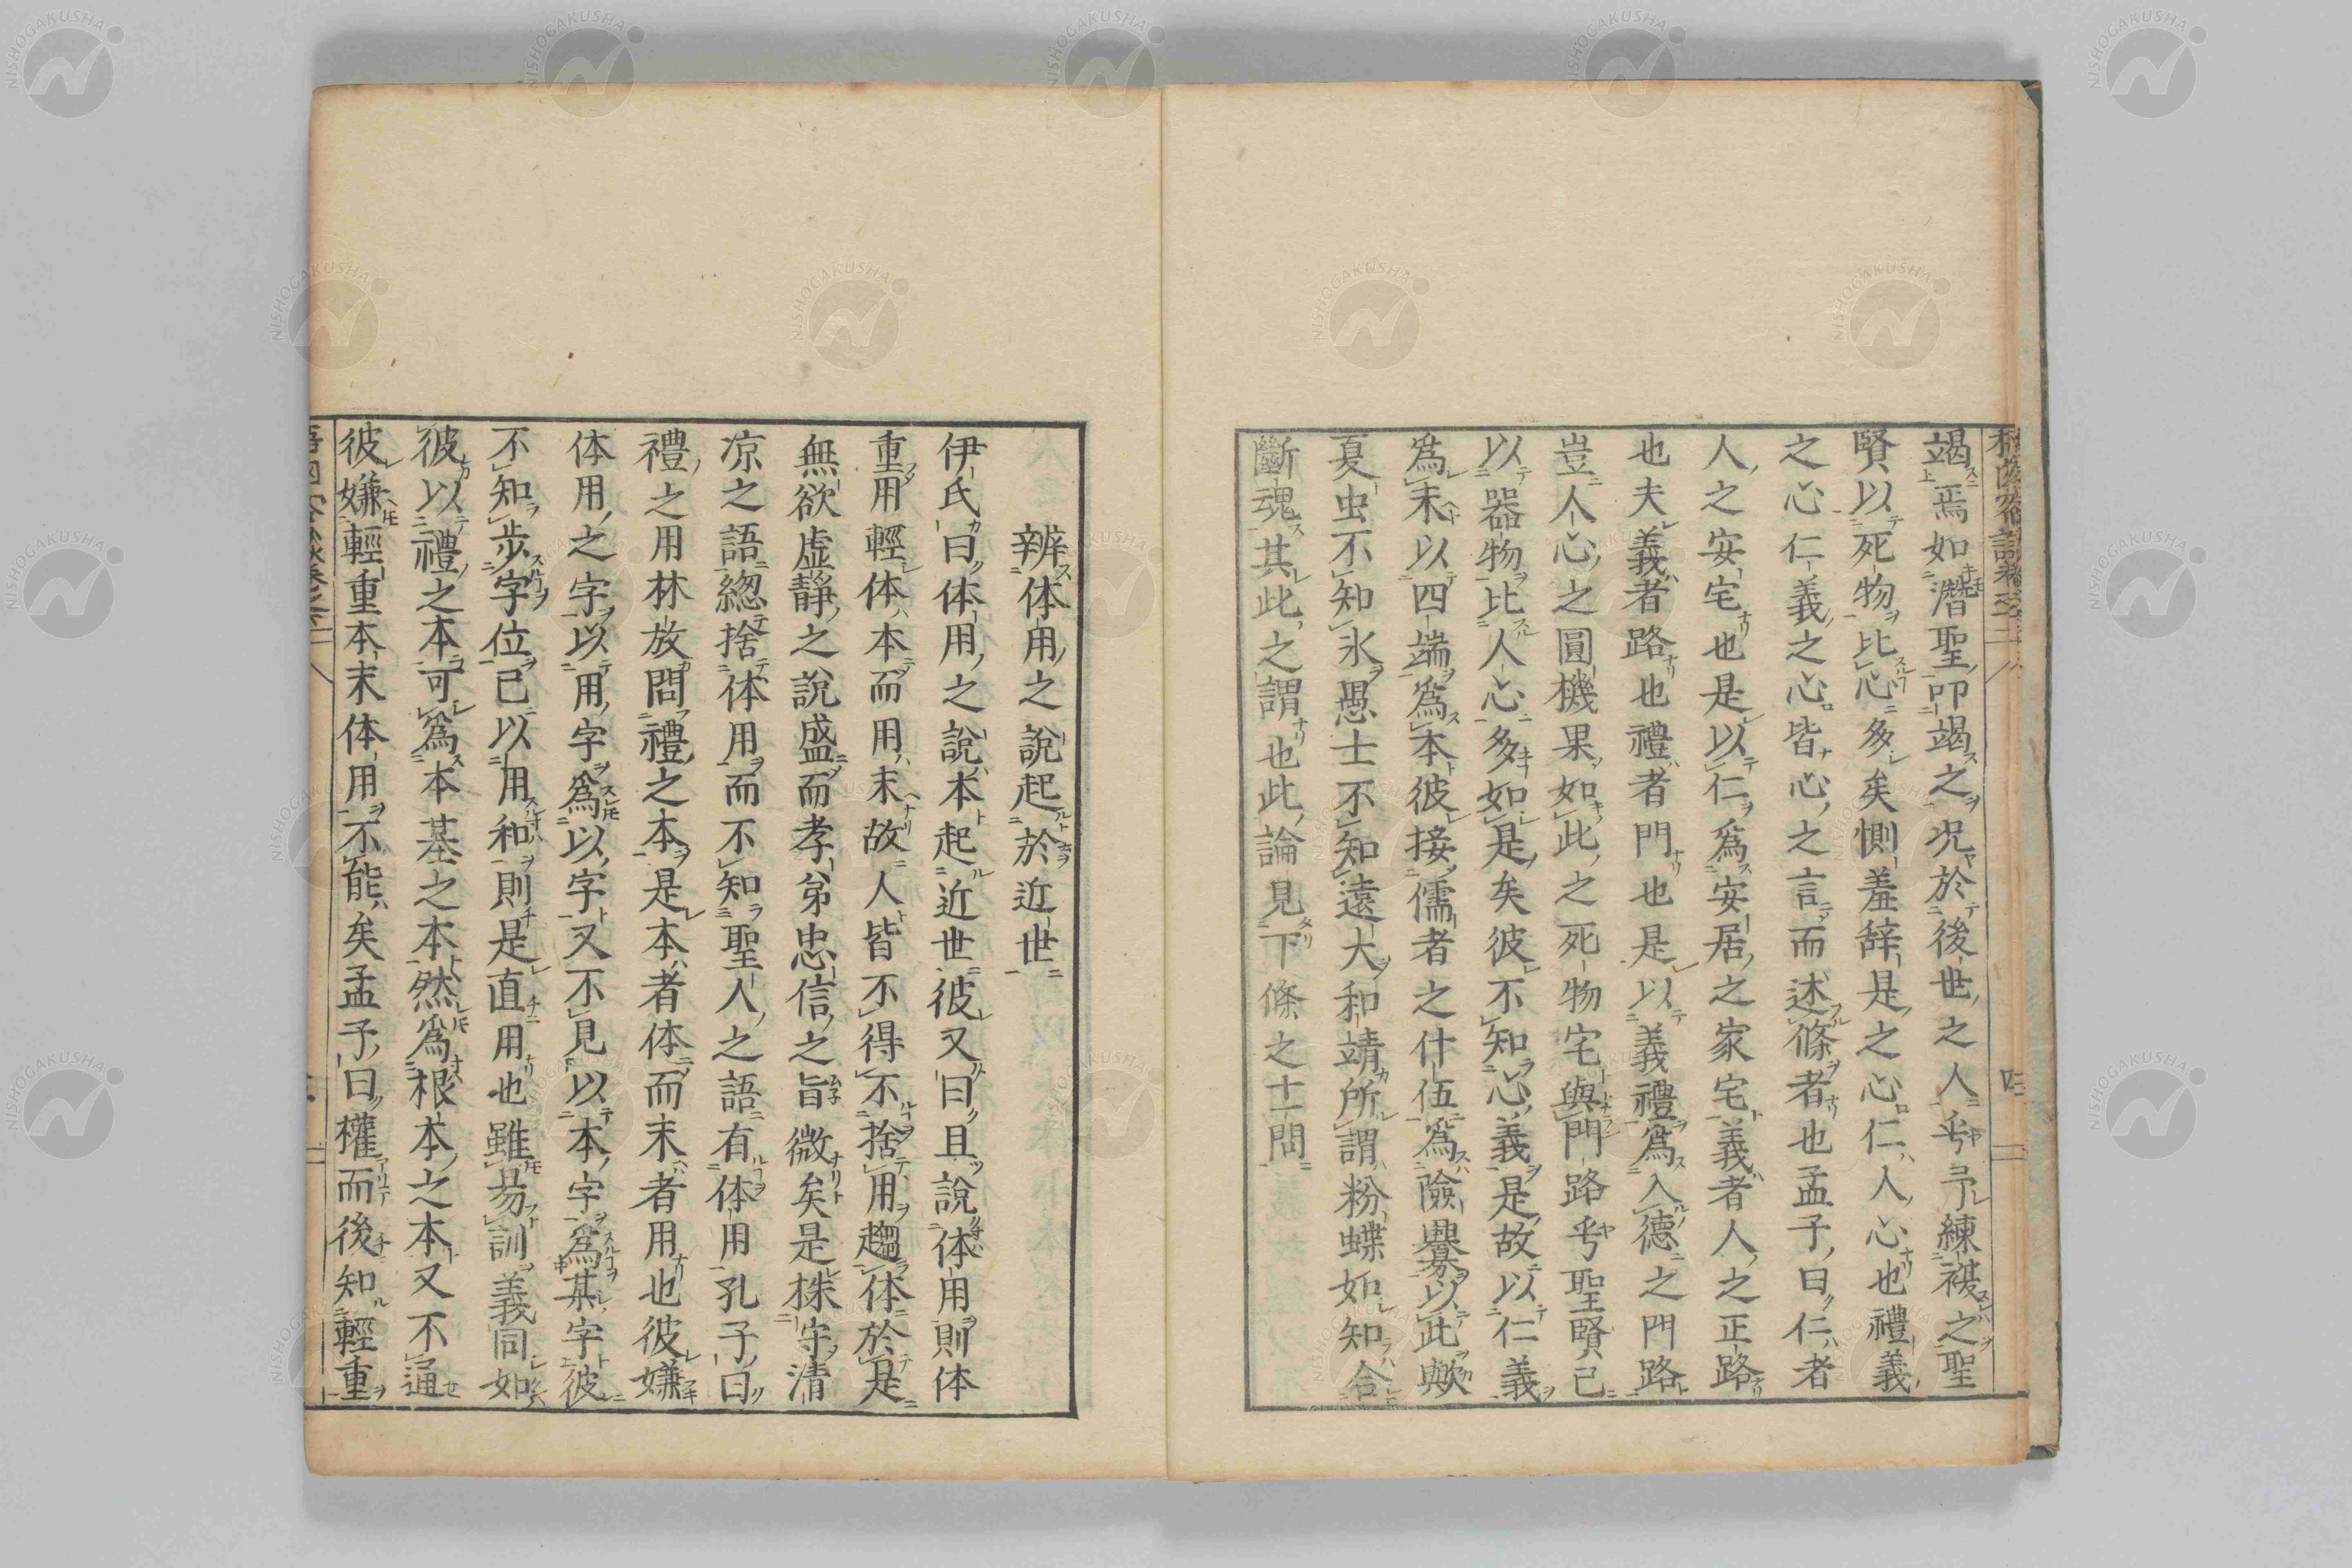 竭焉如潛聖叩竭之況於後世之人乎予練禖之聖
賢以死物比心多矣惻羞辞是之心仁人心也禮義
之心仁義之心皆心之言而述條者也孟子曰仁者
人之安宅也是以仁爲安居之家宅義者人之正路
也夫義者路也禮者門也是以義禮爲入德之門路
豈人心之圓機果如此之死物宅與門路乎聖賢已
以器物比人心多如是矣彼不知心義是故以仁義
爲末以四端爲本彼接儒者之什伍爲險以此歟
夏虫不知氷愚士不知遠大和靖所謂粉蝶如知合
斷魂其此之謂也此論見下條之十一問
辨体用之說起於近世
伊氏曰体用之說本起近世彼又曰且說体用則体
重用輕体本而用末故人皆不得不捨用趨体於是
無欲虛靜之說盛而孝弟忠信之旨微矣是株守清
凉之語緫捨体用而不知聖人之語有体用孔子曰
禮之用林放問禮之本是本者体而末者用也彼嫌
体用之字以用字爲以字又不見以本字爲其字彼
不知步字位己以用和則是直用也雖芴訓義同如
彼以禮之本可爲本基之本然爲根本之本又不通
彼嫌輕重本末体用不能矣孟子曰權而後知輕重